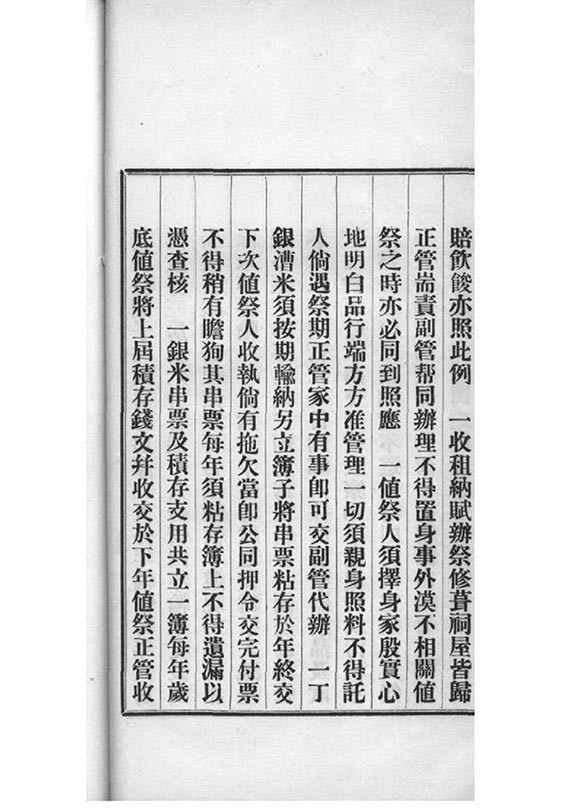 賠飲餕亦照此例　一收租納賦辦祭修葺祠屋皆歸
正管耑責副管帮同辦理不得置身事外漠不相關値
祭之時亦必同到照應　一値祭人須擇身家殷實心
地明白品行端方方准管理一切須親身照料不得託
人倘遇祭期正管家中有事卽可交副管代辦　一丁
銀漕米須按期輸納另立簿子將串票粘存於年終交
下次値祭人收執倘有拖欠當卽公同押令交完付票
不得稍有瞻狥其串票每年須粘存簿上不得遺漏以
憑查核　一銀米串票及積存支用共立一簿每年歲
底値祭將上屆積存錢文幷收交於下年値祭正管收